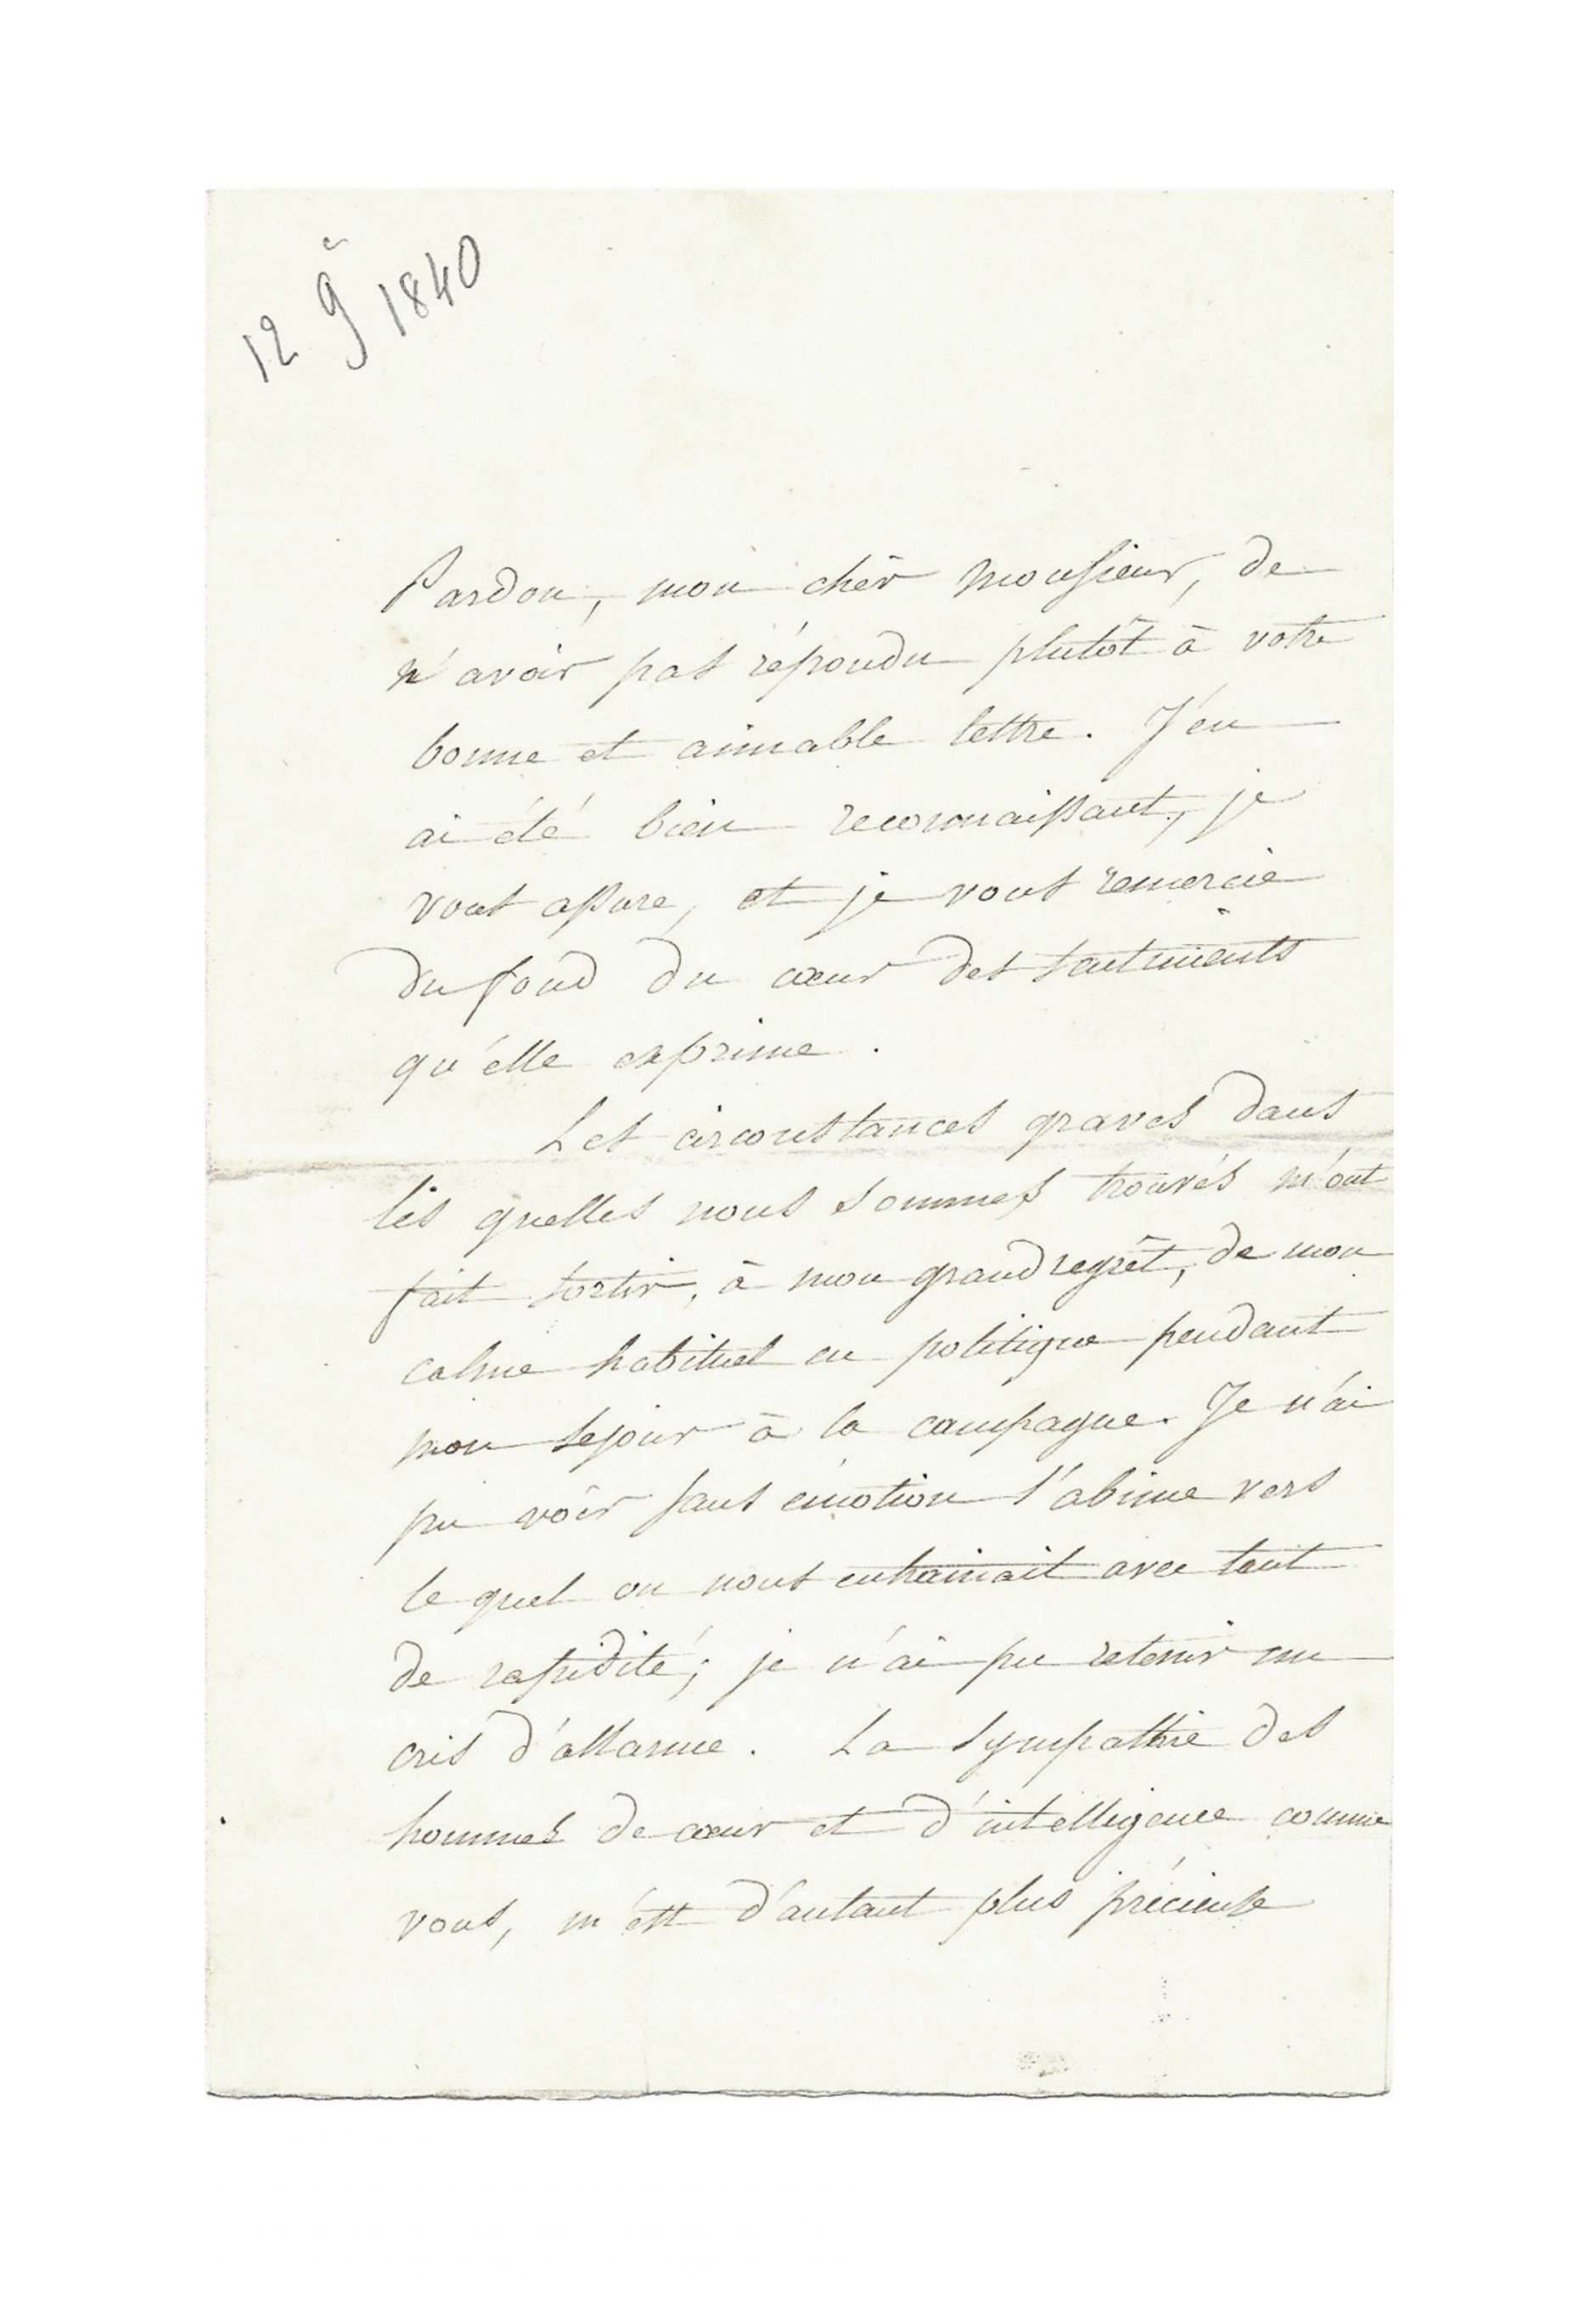 12 9r 1840
Pardon, mon cher Monsieur, de
n'avoir pas répondu plutôt à votre
bonne et aimable lettre. J'en
ai été bien reconnaissant, je
vous assure, et je vous remercie
du fond du cœur des sentiments
qu'elle exprime.
Les circonstances graves dans
les quelles nous sommes trouvés m'ont
fait sortir, à mon grand regrêt, de mon
calme habituel en politique pendant
mon séjour à la campagne. Je n'ai
pu voir sans émotion l'abime vers
le quel on nous entrainait avec tant
de rapidité; je n'ai pu retenir un
cris d'allarme. La sympathie des
hommes de cœur et d'intelligence comme
vous, m'est d'autant plus précieuse